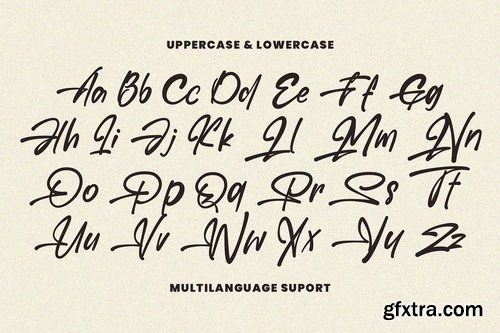 UPPERCASE & LOWERCASE
Aa Bb Cc Dd Ee Ff Gg
Hh Ii Jj Kk Ll Mm Nn
Oo Pp Qq Rr Ss Tt
Uu Vv Ww Xx Yy Zz
MULTILANGUAGE SUPORT
gfxtra.com